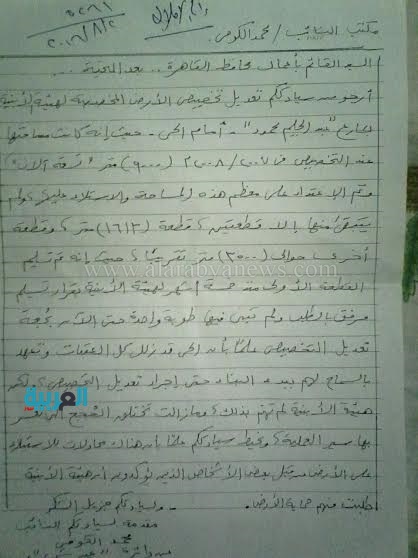 مكتب النائب / محمد الكومى
٢٠١٦/٨/٢
السيد القائم بأعمال محافظ القاهرة .. بعد التحية
أرجو من سيادتكم تعديل تخصيص الأرض المخصصة لهيئة الأبنية
بشارع "عبد الحليم محمود" - أمام الحى - حيث إنه كانت مساحتها
عند التخصيص فى ٢٠٠٨/٢٠٠٧ (٩٠٠٠) متر "تسعة آلاف"
وتم الإعتداء على معظم هذه المساحة والإستيلاء عليها ولم
يتبقى منها إلا قطعتين قطعة (١٦١٣) متر وقطعة
أخرى حوالى (٣٥٠٠) متر تقريباً حيث إنه تم تسليم
القطعة الأولى منذ خمسة أشهر لهيئة الأبنية بقرار تسليم
مرفق بالطلب ولم تبنى فيها طوبة واحدة حتى الآن بحجة
تعديل التخصيص علماً بأن الحى قد ذلل كل العقبات وتعهد
بالسماح لهم ببدء البناء حتى إجراء تعديل التخصيص ولكن
هيئة الأبنية لم تهتم بذلك ومازالت تختلق الحجج التى تضر
بها سير العملية ونحيط سيادتكم علماً بأن هناك محاولات للإستيلاء
على الأرض من قبل بعض الأشخاص الذين يؤكدون أن هيئة الأبنية
طلبت منهم حماية الأرض.
ولسيادتكم جزيل الشكر
مقدمه لسيادتكم النائب
محمد الكومى
العربية
www.alarabyanews.com